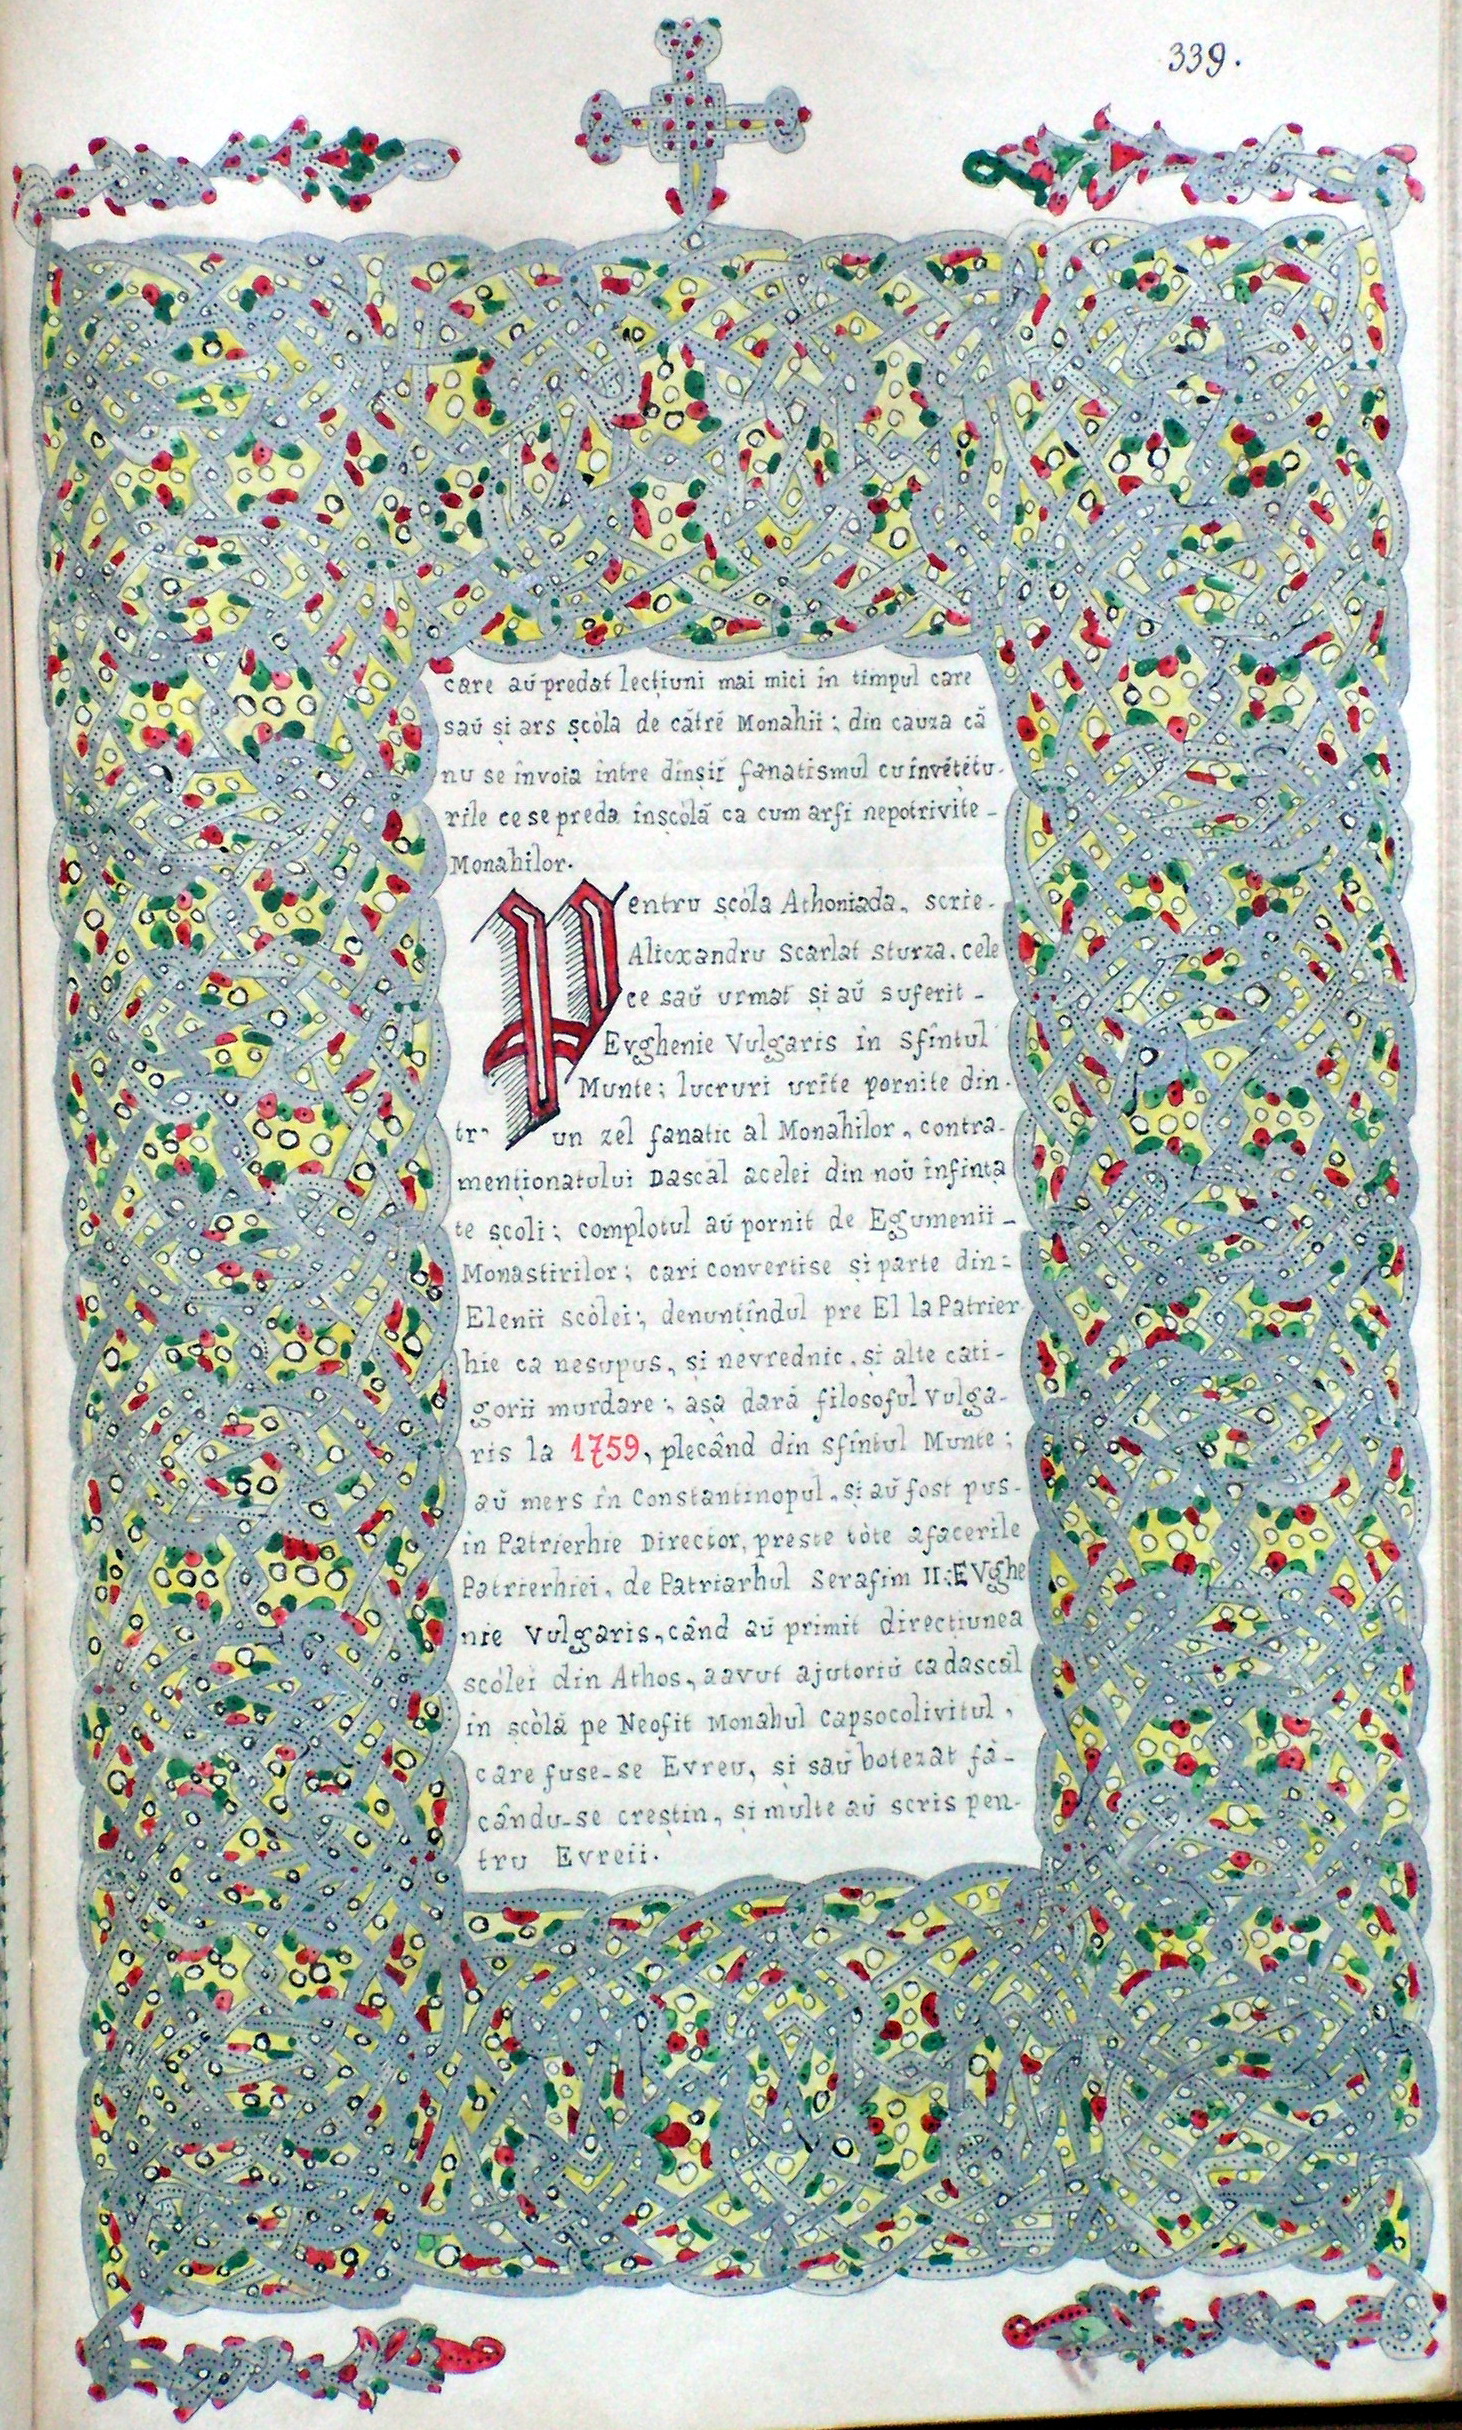 339.
care aŭ predat lecțiuni mai mici în timpul care
saŭ și ars șcòla de cătrĕ Monahii; din cauza că
nu se învoia între dînșiĭ fanatismul cu învĕtĕtu-
rile ce se preda în șcòlă ca cum ar fi nepotrivite -
Monahilor.
Pentru șco̓la Athoniada, scrie-
Alicxandru Scarlat Sturza, cele
ce saŭ urmat și aŭ suferit -
Evghenie Vulgaris în Sfîntul
Munte; lucruri urîte pornite din-
tr' un zel fanatic al Monahilor, contra-
menționatului Dascal acelei din noŭ înfința
te școli; complotul aŭ pornit de Egumenii -
Monastirilor; cari convertise și parte din=
Elenii scòlei; denunțîndul pre El la Patrier
hie ca nesupus, și nevrednic, și alte cati-
gorii murdare; așa dară filosoful Vulga-
ris la 1759, plecând din Sfîntul Munte;
aŭ mers în Constantinopul, și aŭ fost pus-
in Patrierhie Director, preste tòte afacerile
Patrierhiei, de Patriarhul Serafim II: EVghe
nie Vulgaris, când aŭ primit direcțiunea
scòlei din Athos, a avut ajutoriŭ ca dascăl
în șcòlă pe Neofit Monahul Capsocolivitul,
care fuse-se Evreu, și saŭ botezat fă-
cându-se creștin, și multe aŭ scris pen-
tru Evreii.